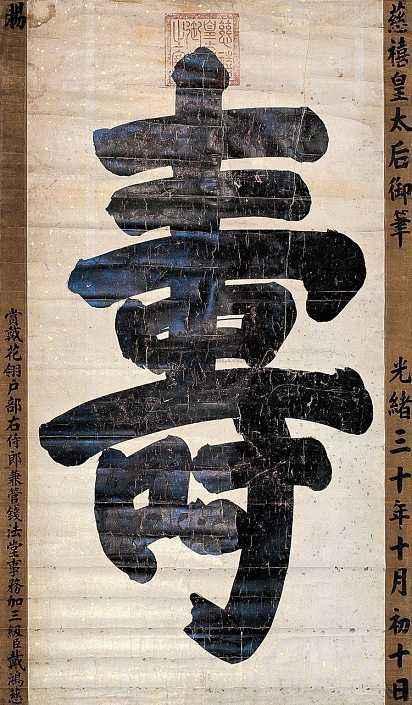 慈禧皇太后御筆 光緒三十年十月初十日
慈禧皇太后御筆之寶
壽
賜
賞戴花翎戶部右侍郎兼管錢法堂事務加三級臣戴鴻慈